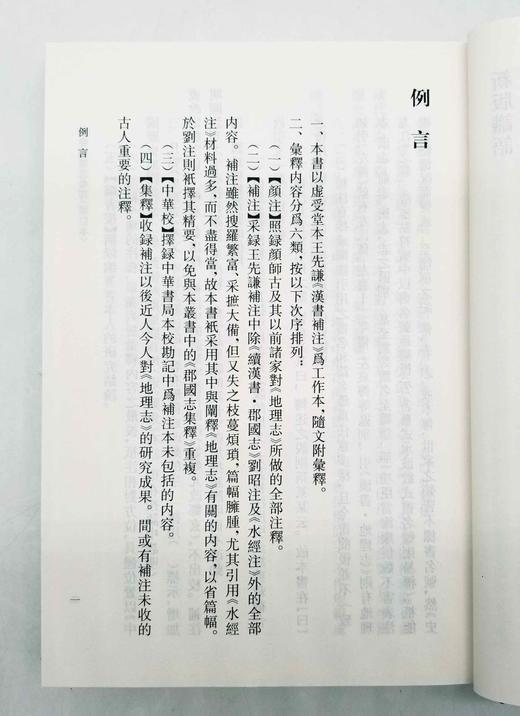 例言
一、本書以虛受堂本王先謙《漢書補注》爲工作本，隨文附彙釋。
二、彙釋内容分爲六類，按以下次序排列：
（一）【顔注】照録顔師古及其以前諸家對《地理志》所做的全部注釋。
（二）【補注】采録王先謙補注中除《續漢書·郡國志》劉昭注及《水經注》外的全部
内容。補注雖然搜羅繁富、采摭大備，但又失之枝蔓煩瑣、篇幅臃腫，尤其引用《水經
注》材料過多，而不盡得當，故本書衹采用其中與闡釋《地理志》有關的内容，以省篇幅。
於劉注則衹擇其精要，以免與本叢書中的《郡國志集釋》重複。
（三）【中華校】擇録中華書局本校勘記中爲補注本未包括的内容。
（四）【集釋】收録補注以後近人今人對《地理志》的研究成果。間或有補注未收的
古人重要的注釋。
例言
一